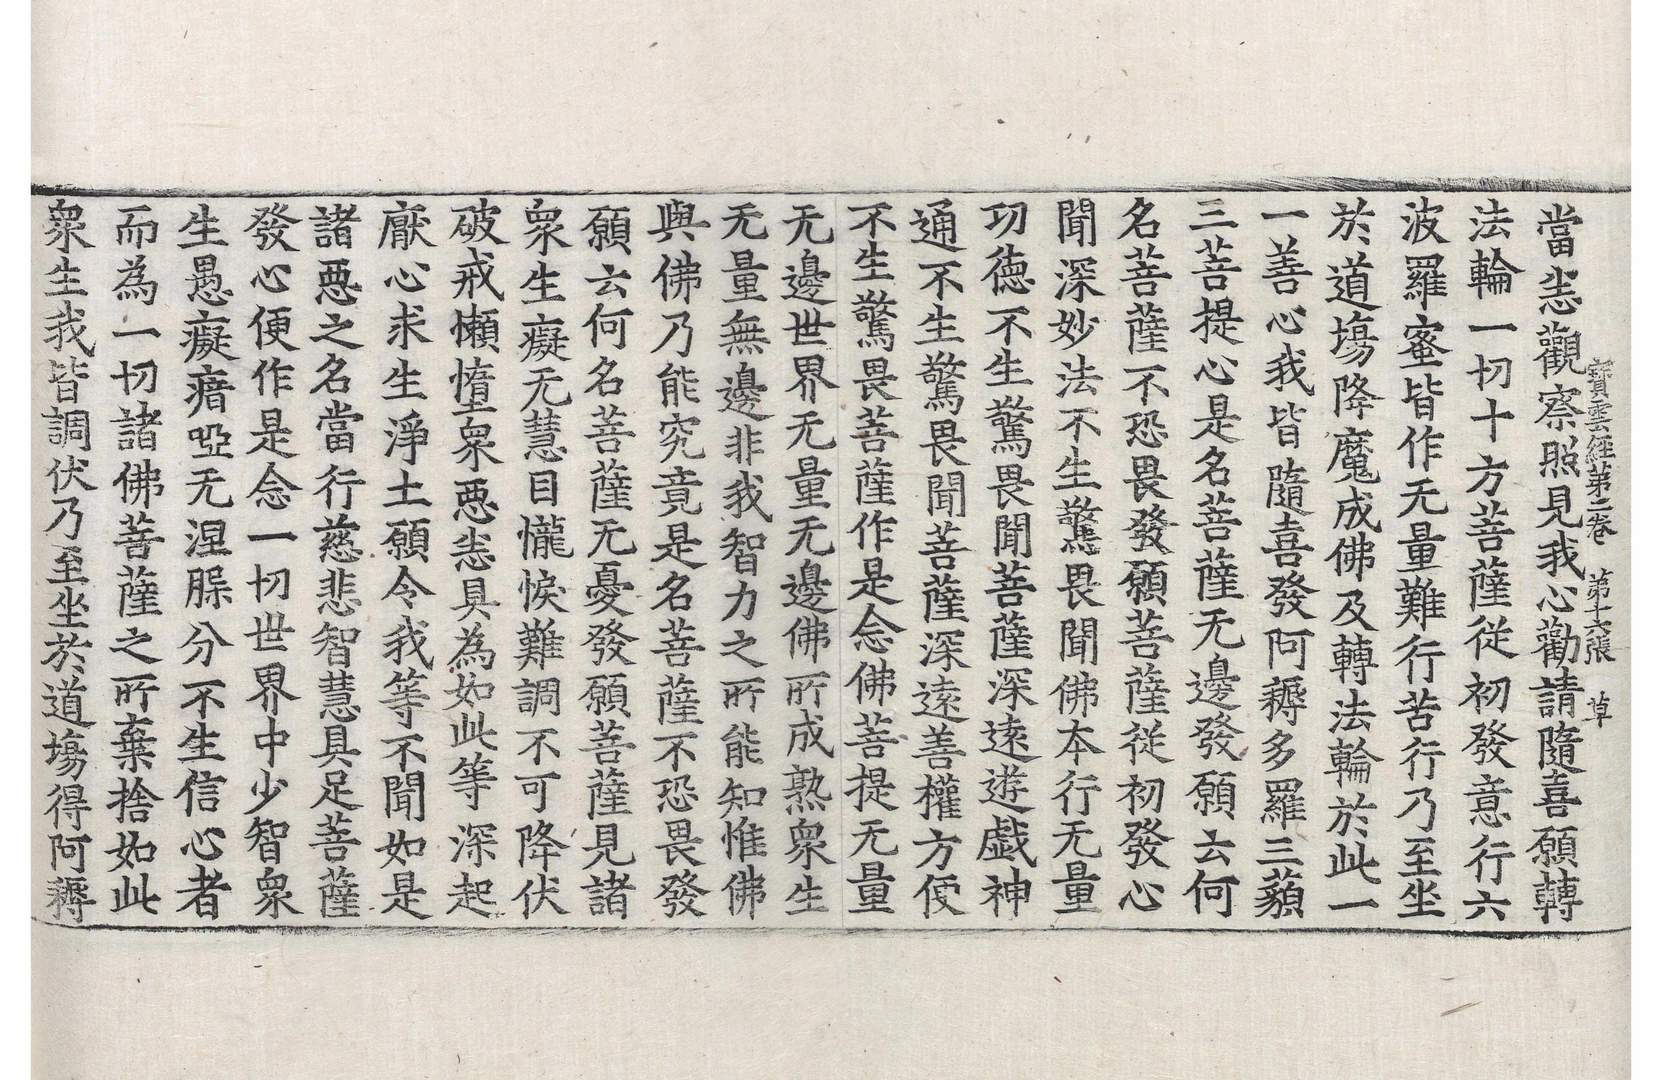 寶雲經第二卷　第十七張　草
當恙觀察照見我心勸請隨喜願轉
法輪一切十方菩薩從初發意行六
波羅蜜皆作无量難行苦行乃至坐
於道場降魔成佛及轉法輪於此一
一善心我皆隨喜發阿耨多羅三藐
三菩提心是名菩薩无邊發願云何
名菩薩不恐畏發願菩薩從初發心
聞深妙法不生驚畏聞佛本行无量
功德不生驚畏聞菩薩深遠遊戲神
通不生驚畏聞菩薩深遠善權方便
不生驚畏菩薩作是念佛菩提无量
无邊世界无量无邊佛所成熟衆生
无量無邊非我智力之所能知惟佛
與佛乃能究竟是名菩薩不恐畏發
願云何名菩薩无憂發願菩薩見諸
衆生癡无慧目㦬悷難調不可降伏
破戒懶墮衆惡恙具為如此等深起
厭心求生淨土願令我等不聞如是
諸惡之名當行慈悲智慧具足菩薩
發心便作是念一切世界中少智衆
生愚癡瘖瘂无涅槃分不生信心者
而為一切諸佛菩薩之所棄捨如此
衆生我皆調伏乃至坐於道場得阿耨